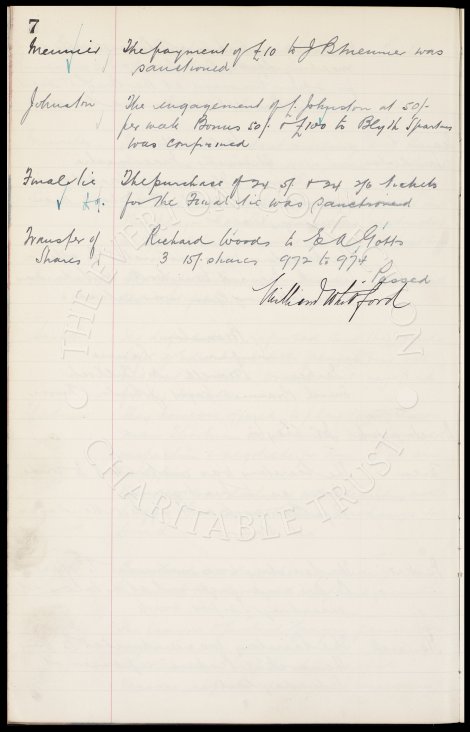 7
Meunier The payment of £10 to J B Meunier was
sanctioned
Johnston The engagement of L. Johnston at 50/-
per week Bonus 50/- & £100 to Blyth Spartans
was confirmed
Final tie The purchase of 24 5/- & 24 2/6 tickets
for the Final tie was sanctioned
Transfer of Richard Woods to E A Gotts
Shares 3 15/- shares 972 to 974
Passed
Will Whitford
THE EVERTON COLLECTION
CHARITABLE TRUST